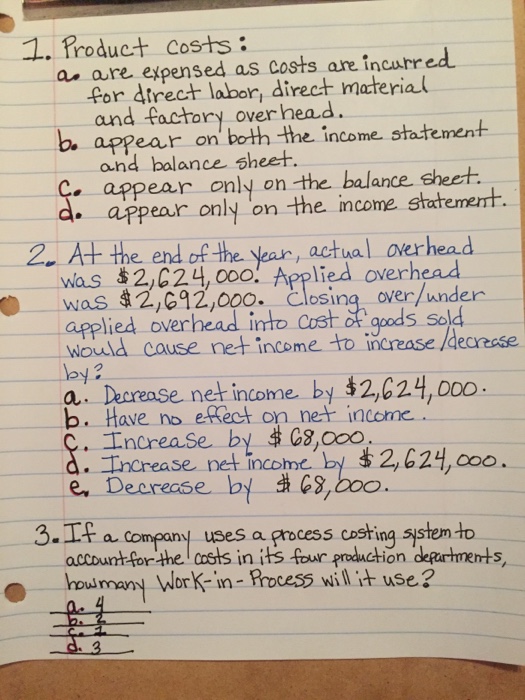 1. Product costs:
a. are expensed as costs are incurred
for direct labor, direct material
and factory overhead.
b. appear on both the income statement
and balance sheet.
c. appear only on the balance sheet.
d. appear only on the income statement.
2. At the end of the year, actual overhead
was $2,624,000. Applied overhead
was $2,692,000. Closing over/under
applied overhead into cost of goods sold
would cause net income to increase/decrease
by?
a. Decrease net income by $2,624,000.
b. Have no effect on net income.
c. Increase by $68,000.
d. Increase net income by $2,624,000.
e. Decrease by $68,000.
3. If a company uses a process costing system to
account for the costs in its four production departments,
how many Work-in-Process will it use?
a. 4
b. 2
c. 1
d. 3